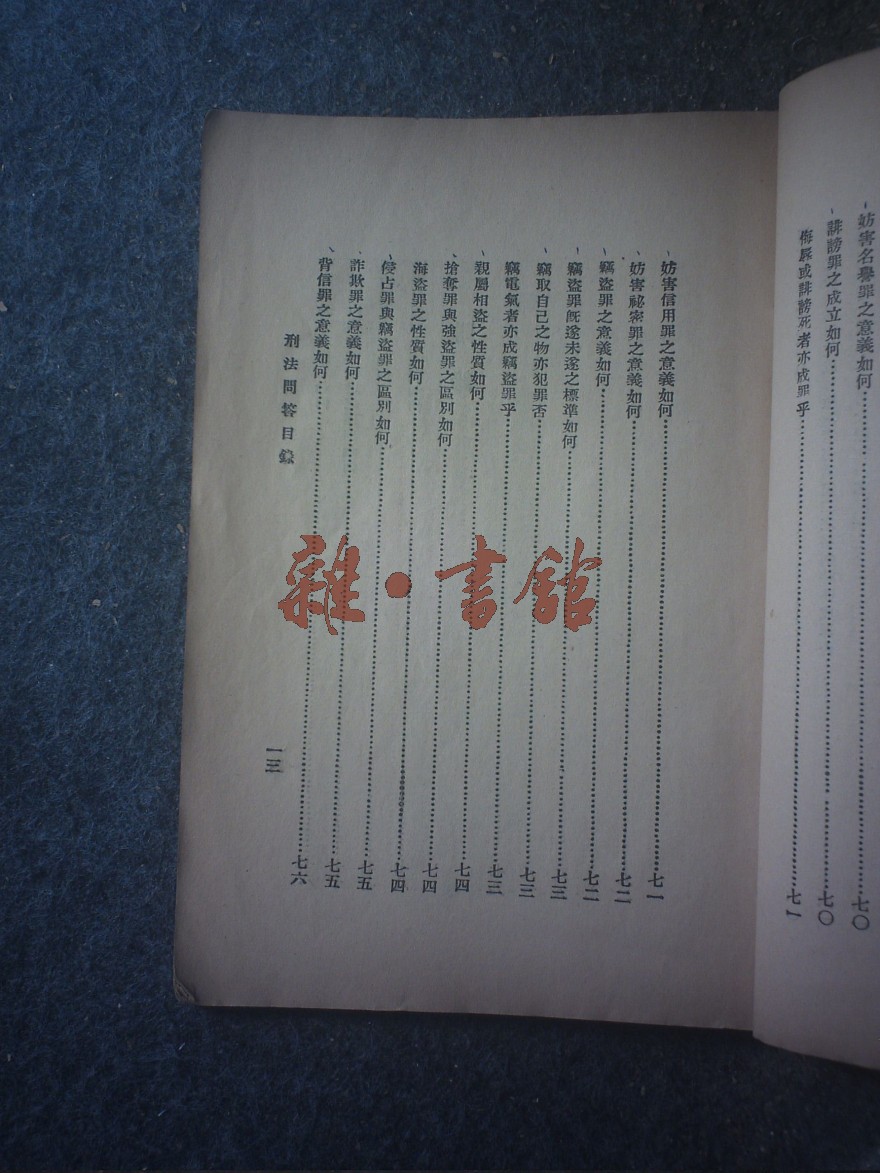 、妨害名譽罪之意義如何……七〇
、誹謗罪之成立如何……七〇
侮辱或誹謗死者亦成罪乎……七一
、妨害信用罪之意義如何……七一
、妨害祕密罪之意義如何……七二
、竊盜罪之意義如何……七二
、竊盜罪既遂未遂之標準如何……七三
、竊取自己之物亦犯罪否……七三
竊電氣者亦成竊盜罪乎……七三
、親屬相盜之性質如何……七四
、搶奪罪與強盜罪之區別如何……七四
海盜罪之性質如何……七四
、侵占罪與竊盜罪之區別如何……七五
、詐欺罪之意義如何……七五
、背信罪之意義如何……七六
刑法問答目錄
一三
雜·書館